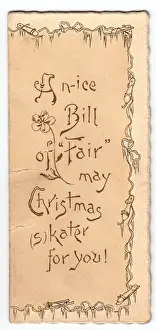 A n-ice
Bill
of "Fair"
may
Christmas
(s)kater
for you!